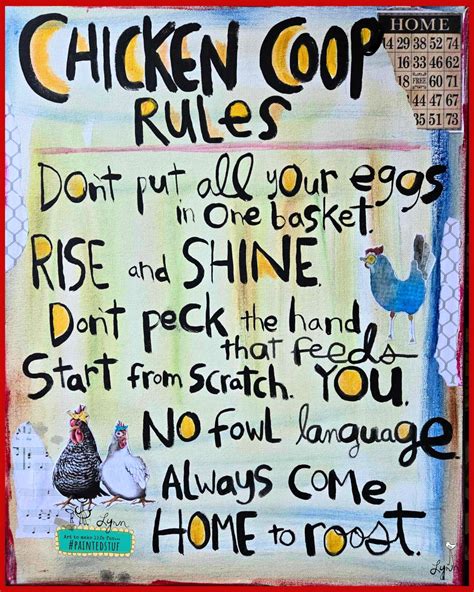 CHICKEN COOP
RULES
HOME
14 29 38 52 74
16 33 45 66
18 FREE 60 71
44 47 67
35 51 73
Don't put all your eggs
in one basket.
RISE and SHINE.
Don't peck the hand
that feeds
YOU.
Start from scratch.
No fowl language
Always come
HOME to roost.
Lynn
Art to make life fun...
#PAINTEDSTUF
Lynn